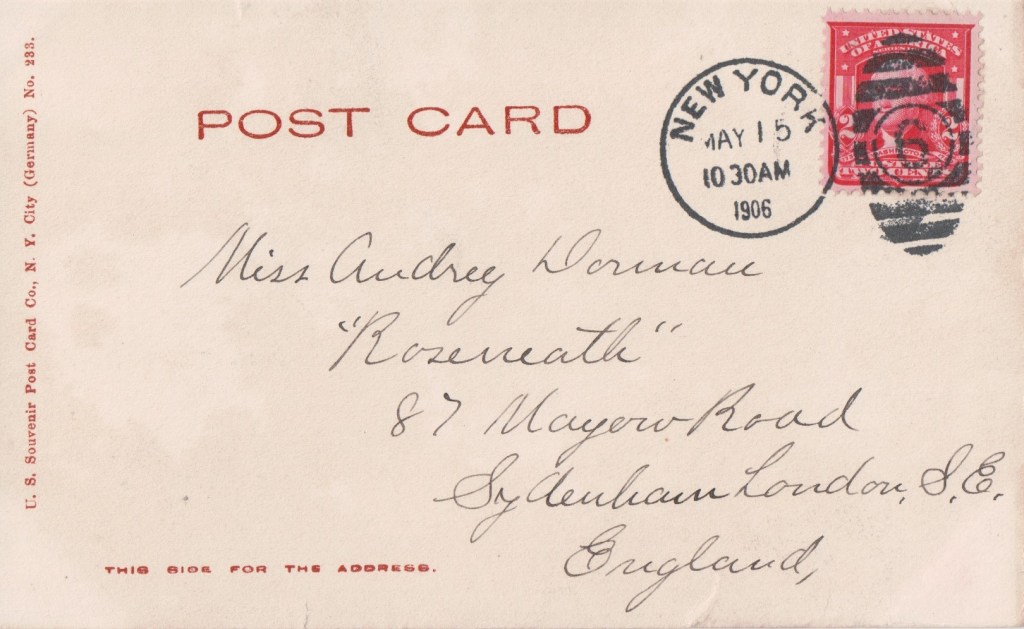 U. S. Souvenir Post Card Co., N. Y. City (Germany) No. 233.
POST CARD
NEW YORK
MAY 15
10 30AM
1906
UNITED STATES
OF AMERICA
2
WASHINGTON
6
Miss Audrey Dorman
"Roseneath"
87 Mayow Road
Sydenham London, S.E.
England,
THIS SIDE FOR THE ADDRESS.